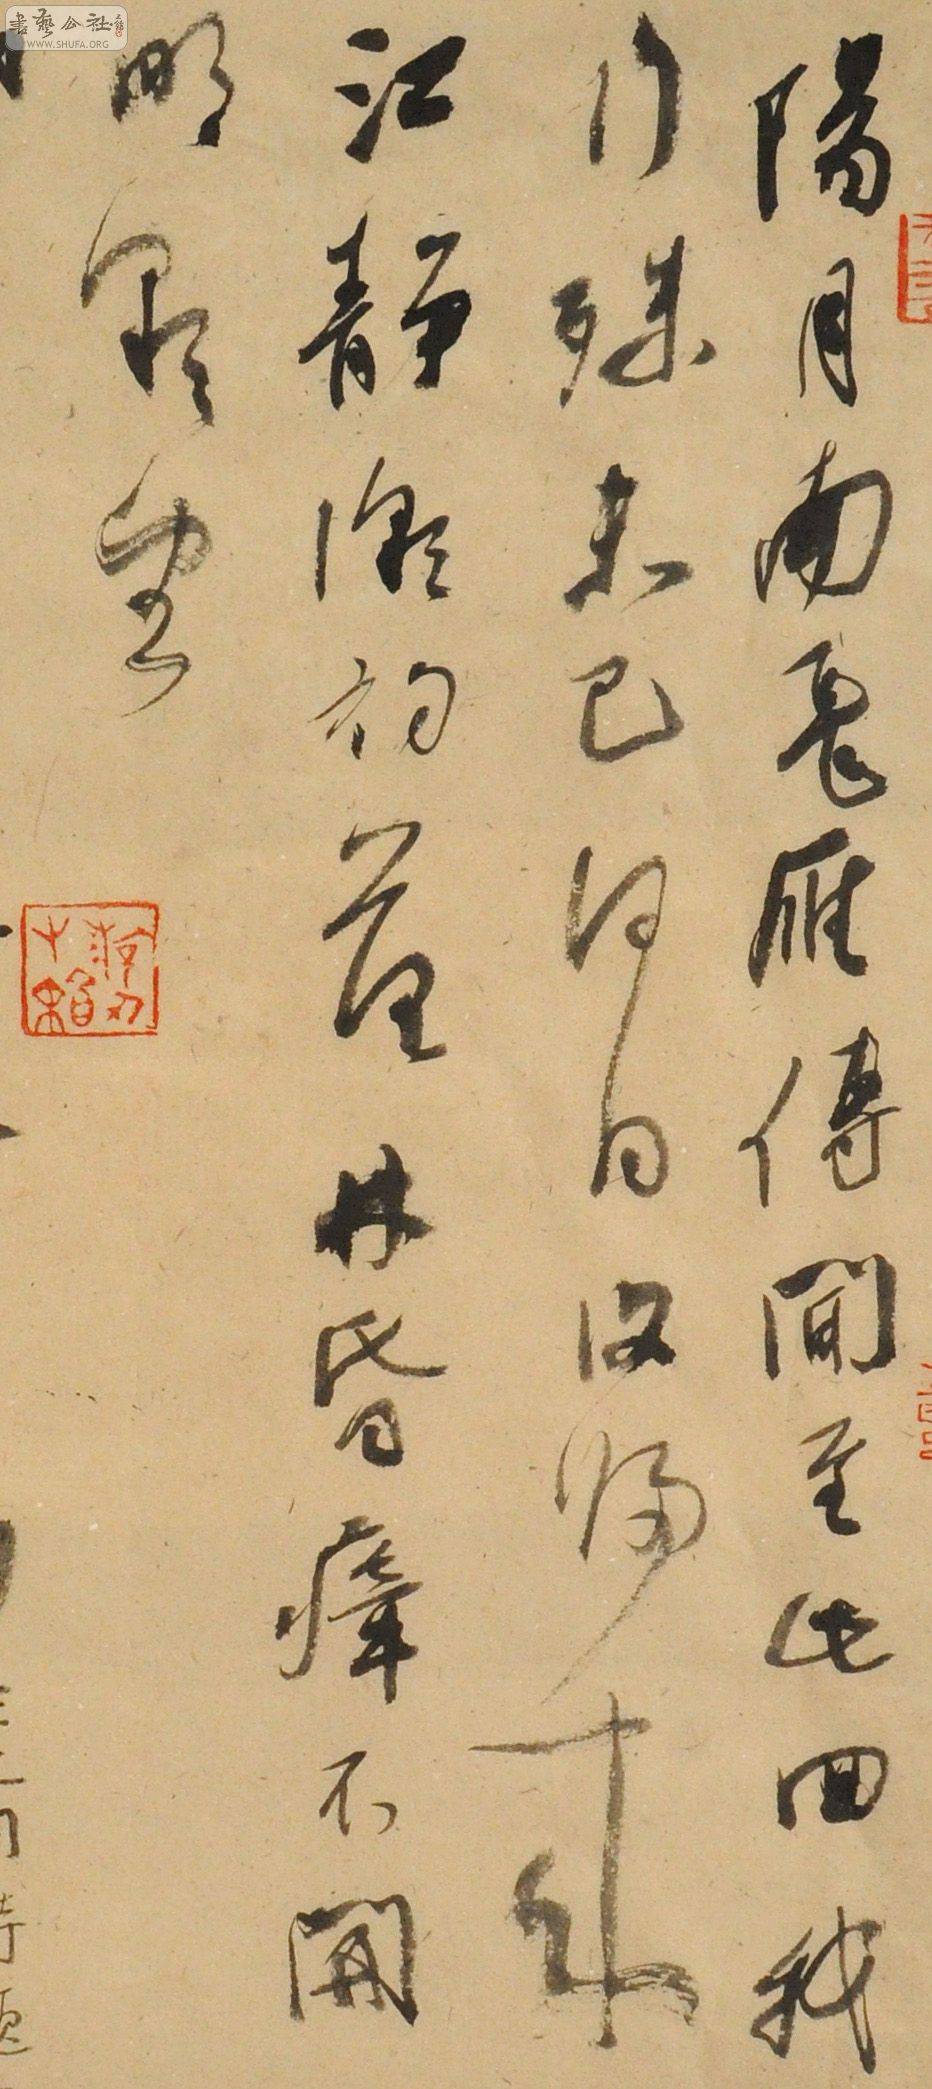 陽月南飛雁傳聞至此回我
行殊未已何日復歸來
江靜潮初落林昏瘴不開
明朝望
書藝公社
WWW.SHUFA.ORG